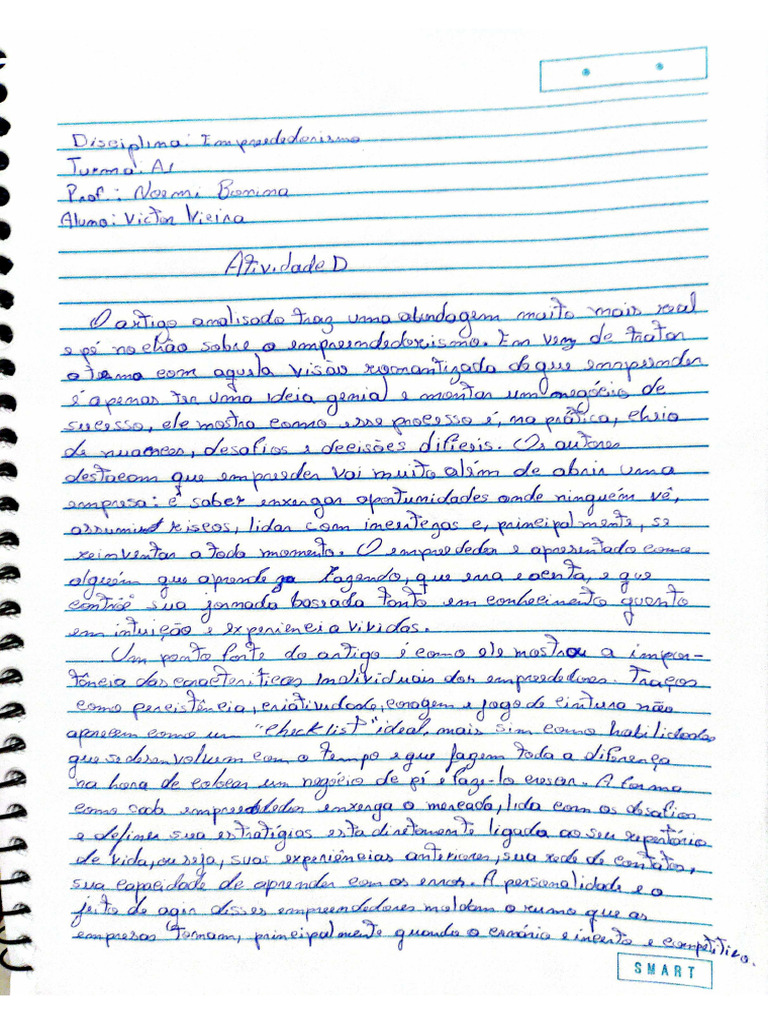 Disciplina: Empreededorismo
Turma: A1
Prof.: Noemi Bonina
Aluno: Victor Vieira
Atividade D
O artigo analisado traz uma abordagem muito mais real
e pé no chão sobre o empreendedorismo. Em vez de tratar
o tema com aquela visão romantizada de que empreender
é apenas ter uma ideia genial e montar um negócio de
sucesso, ele mostra como esse processo é, na prática, cheio
de nuances, desafios e decisões difíceis. Os autores
destacam que empreeder vai muito além de abrir uma
empresa: é saber enxergar oportunidades onde ninguém vê,
assumir riscos, lidar com incertezas e, principalmente, se
reinventar a todo momento. O empreededor e apresentado como
alguém que aprende fazendo, que erra e acerta, e que
constrói sua jornada baseada tanto em conhecimento quanto
em intuição e experiencia vividas.
Um ponto forte do artigo é como ele mostrou a impor-
tância das características individuais dos empreededores. Traços
como persistência, criatividade, coragem e jogo de cintura não
aparecem como um "checklist" ideal, mais sim como habilidades
que se desenvolvem com o tempo e que fazem toda a diferença
na hora de colocar um negócio de pé e faze-lo crescer. A forma
como cada empreededor enxerga o mercado, lida com os desafios
e define sua estratégias esta diretamente ligada ao seu repertório
de vida, ou seja, suas experiências anteriores, sua rede de contatos,
sua capacidade de aprender com os erros. A personalidade e o
jeito de agir desses empreendedores moldam o rumo que as
empresas tomam, principalmente quando o cenário e incerto e competitivo.
SMART